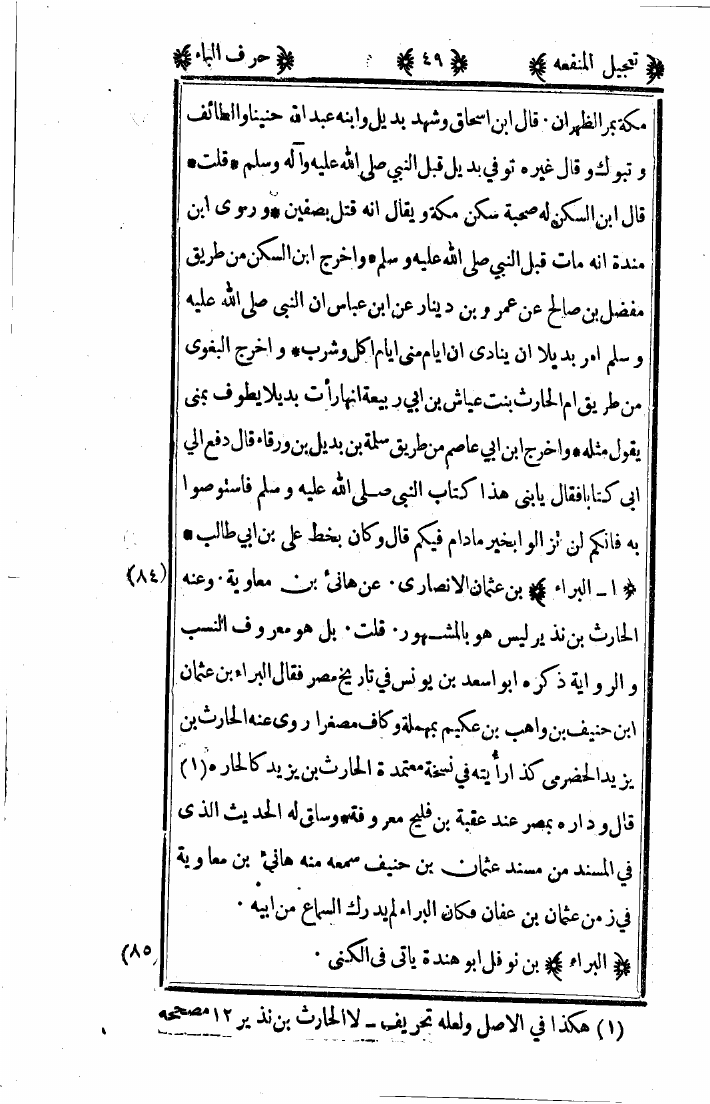 ﴿ تعجيل المنفعه ﴾ ﴿ ٤٩ ﴾ ﴿ حرف الباء ﴾
مكة بمر الظهران ٠ قال ابن اسحاق وشهد بديل وابنه عبد الله حنينا والطائف
و تبوك و قال غيره توفي بديل قبل النبي صلى الله عليه وآله وسلم * قلت *
قال ابن السكن له صحبة سكن مكة و يقال انه قتل بصفين * و روى ابن
مندة انه مات قبل النبي صلى الله عليه و سلم * و اخرج ابن السكن من طريق
مفضل بن صالح عن عمرو بن دينار عن ابن عباس ان النبي صلى الله عليه
و سلم امر بديلا ان ينادى ان ايام منى ايام اكل وشرب * و اخرج البغوى
من طريق ام الحارث بنت عياش بن ابي ربيعة انها رأت بديلا يطوف بمنى
يقول مثله * و اخرج ابن ابي عاصم من طريق سلمة بن بديل بن ورقاء قال دفع الي
ابى كتابا فقال يابنى هذا كتاب النبي صلى الله عليه و سلم فاستوصوا
به فانكم لن تزالوا بخير مادام فيكم قال وكان بخط على بن ابي طالب *
﴿ ١ ـ البراء ﴾ بن عثمان الانصارى ٠ عن هانئ بن معاوية ٠ وعنه (٨٤)
الحارث بن نذير ليس هو بالمشهور ٠ قلت ٠ بل هو معروف النسب
و الرواية ذكره ابو اسعد بن يونس في تاريخ مصر فقال البراء بن عثمان
ابن حنيف بن واهب بن عكيم بمهملة وكاف مصغرا روى عنه الحارث بن
يزيد الحضرمى كذا رأيته في نسخة معتمدة الحارث بن يزيد كالحاره (١)
قال و داره بمصر عند عقبة بن فليح معروفة * وساق له الحديث الذى
في المسند من مسند عثمان بن حنيف سمعه منه هانئ بن معاوية
في زمن عثمان بن عفان فكان البراء لم يدرك السماع من ابيه ٠
﴿ البراء ﴾ بن نوفل ابو هندة ياتى فى الكنى ٠ (٨٥)
(١) هكذا في الاصل ولعله تحريف ـ لا الحارث بن نذير ١٢ مصححه